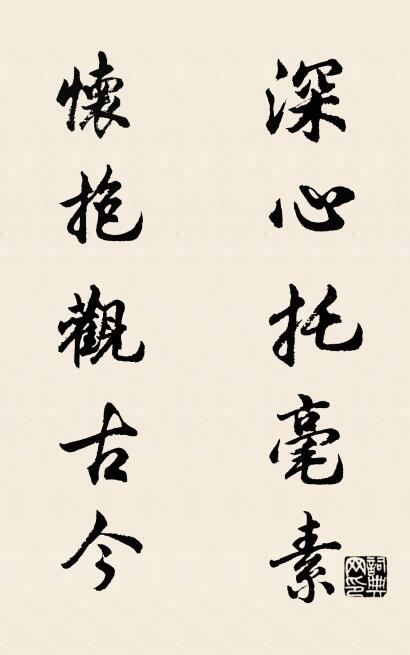 深心托毫素
懷抱觀古今
詞典网印